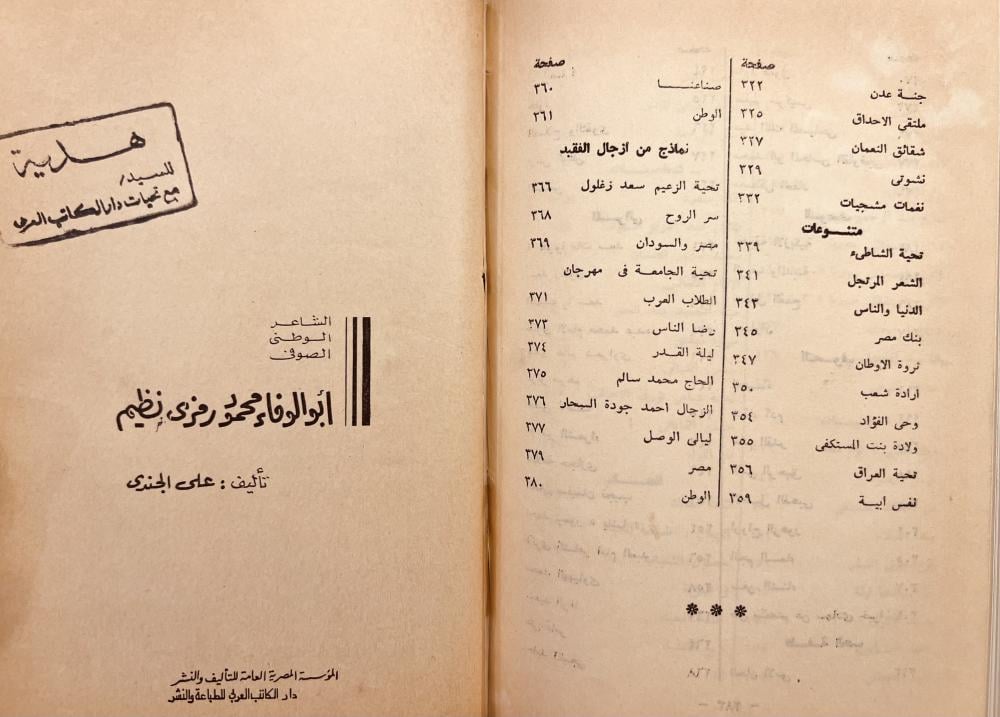 صفحة
جنة عدن ٣٢٢
ملتقي الاحداق ٣٢٥
شقائق النعمان ٣٢٧
نشوتى ٣٢٩
نغمات مشجيات ٣٣٢
متنـوعات
تحية الشاطىء ٣٣٩
الشعر المرتجل ٣٤١
الدنيا والناس ٣٤٣
بنك مصر ٣٤٥
ثروة الاوطان ٣٤٧
ارادة شعب ٣٥٠
وحى الفؤاد ٣٥٤
ولادة بنت المستكفى ٣٥٥
تحية العراق ٣٥٦
نفس ابية ٣٥٩
صفحة
صناعنـا ٣٦٠
الوطن ٣٦١
نماذج من ازجال الفقيد
تحية الزعيم سعد زغلول ٣٦٦
سر الروح ٣٦٨
مصر والسودان ٣٦٩
تحية الجامعة فى مهرجان
الطلاب العرب ٣٧١
رضا الناس ٣٧٣
ليلة القدر ٣٧٤
الحاج محمد سالم ٢٧٥
الزجال احمد جودة السحار ٣٧٦
ليالى الوصل ٣٧٧
مصر ٣٧٩
الوطن ٣٨٠
***
هدية
للسيد/
مع تحيات دار الكاتب العربى
الشاعر
الوطنى
الصوفى
أبو الوفاء محمود رمزى نظيم
تأليف : على الجندى
المؤسسة المصرية العامة للتأليف والنشر
دار الكاتب العربى للطباعة والنشر